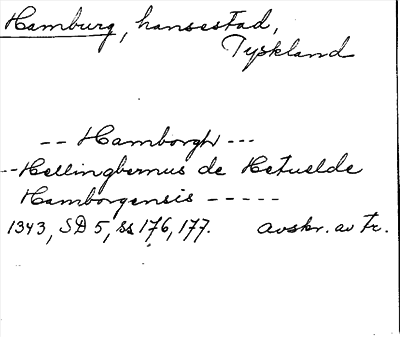 Hamburg, hansestad,
Tyskland
-- Hamborgh ---
-- Hellingbernus de Hetuelde
Hamborgensis -----
1343, SD 5, ss 176, 177. avskr. av tr.